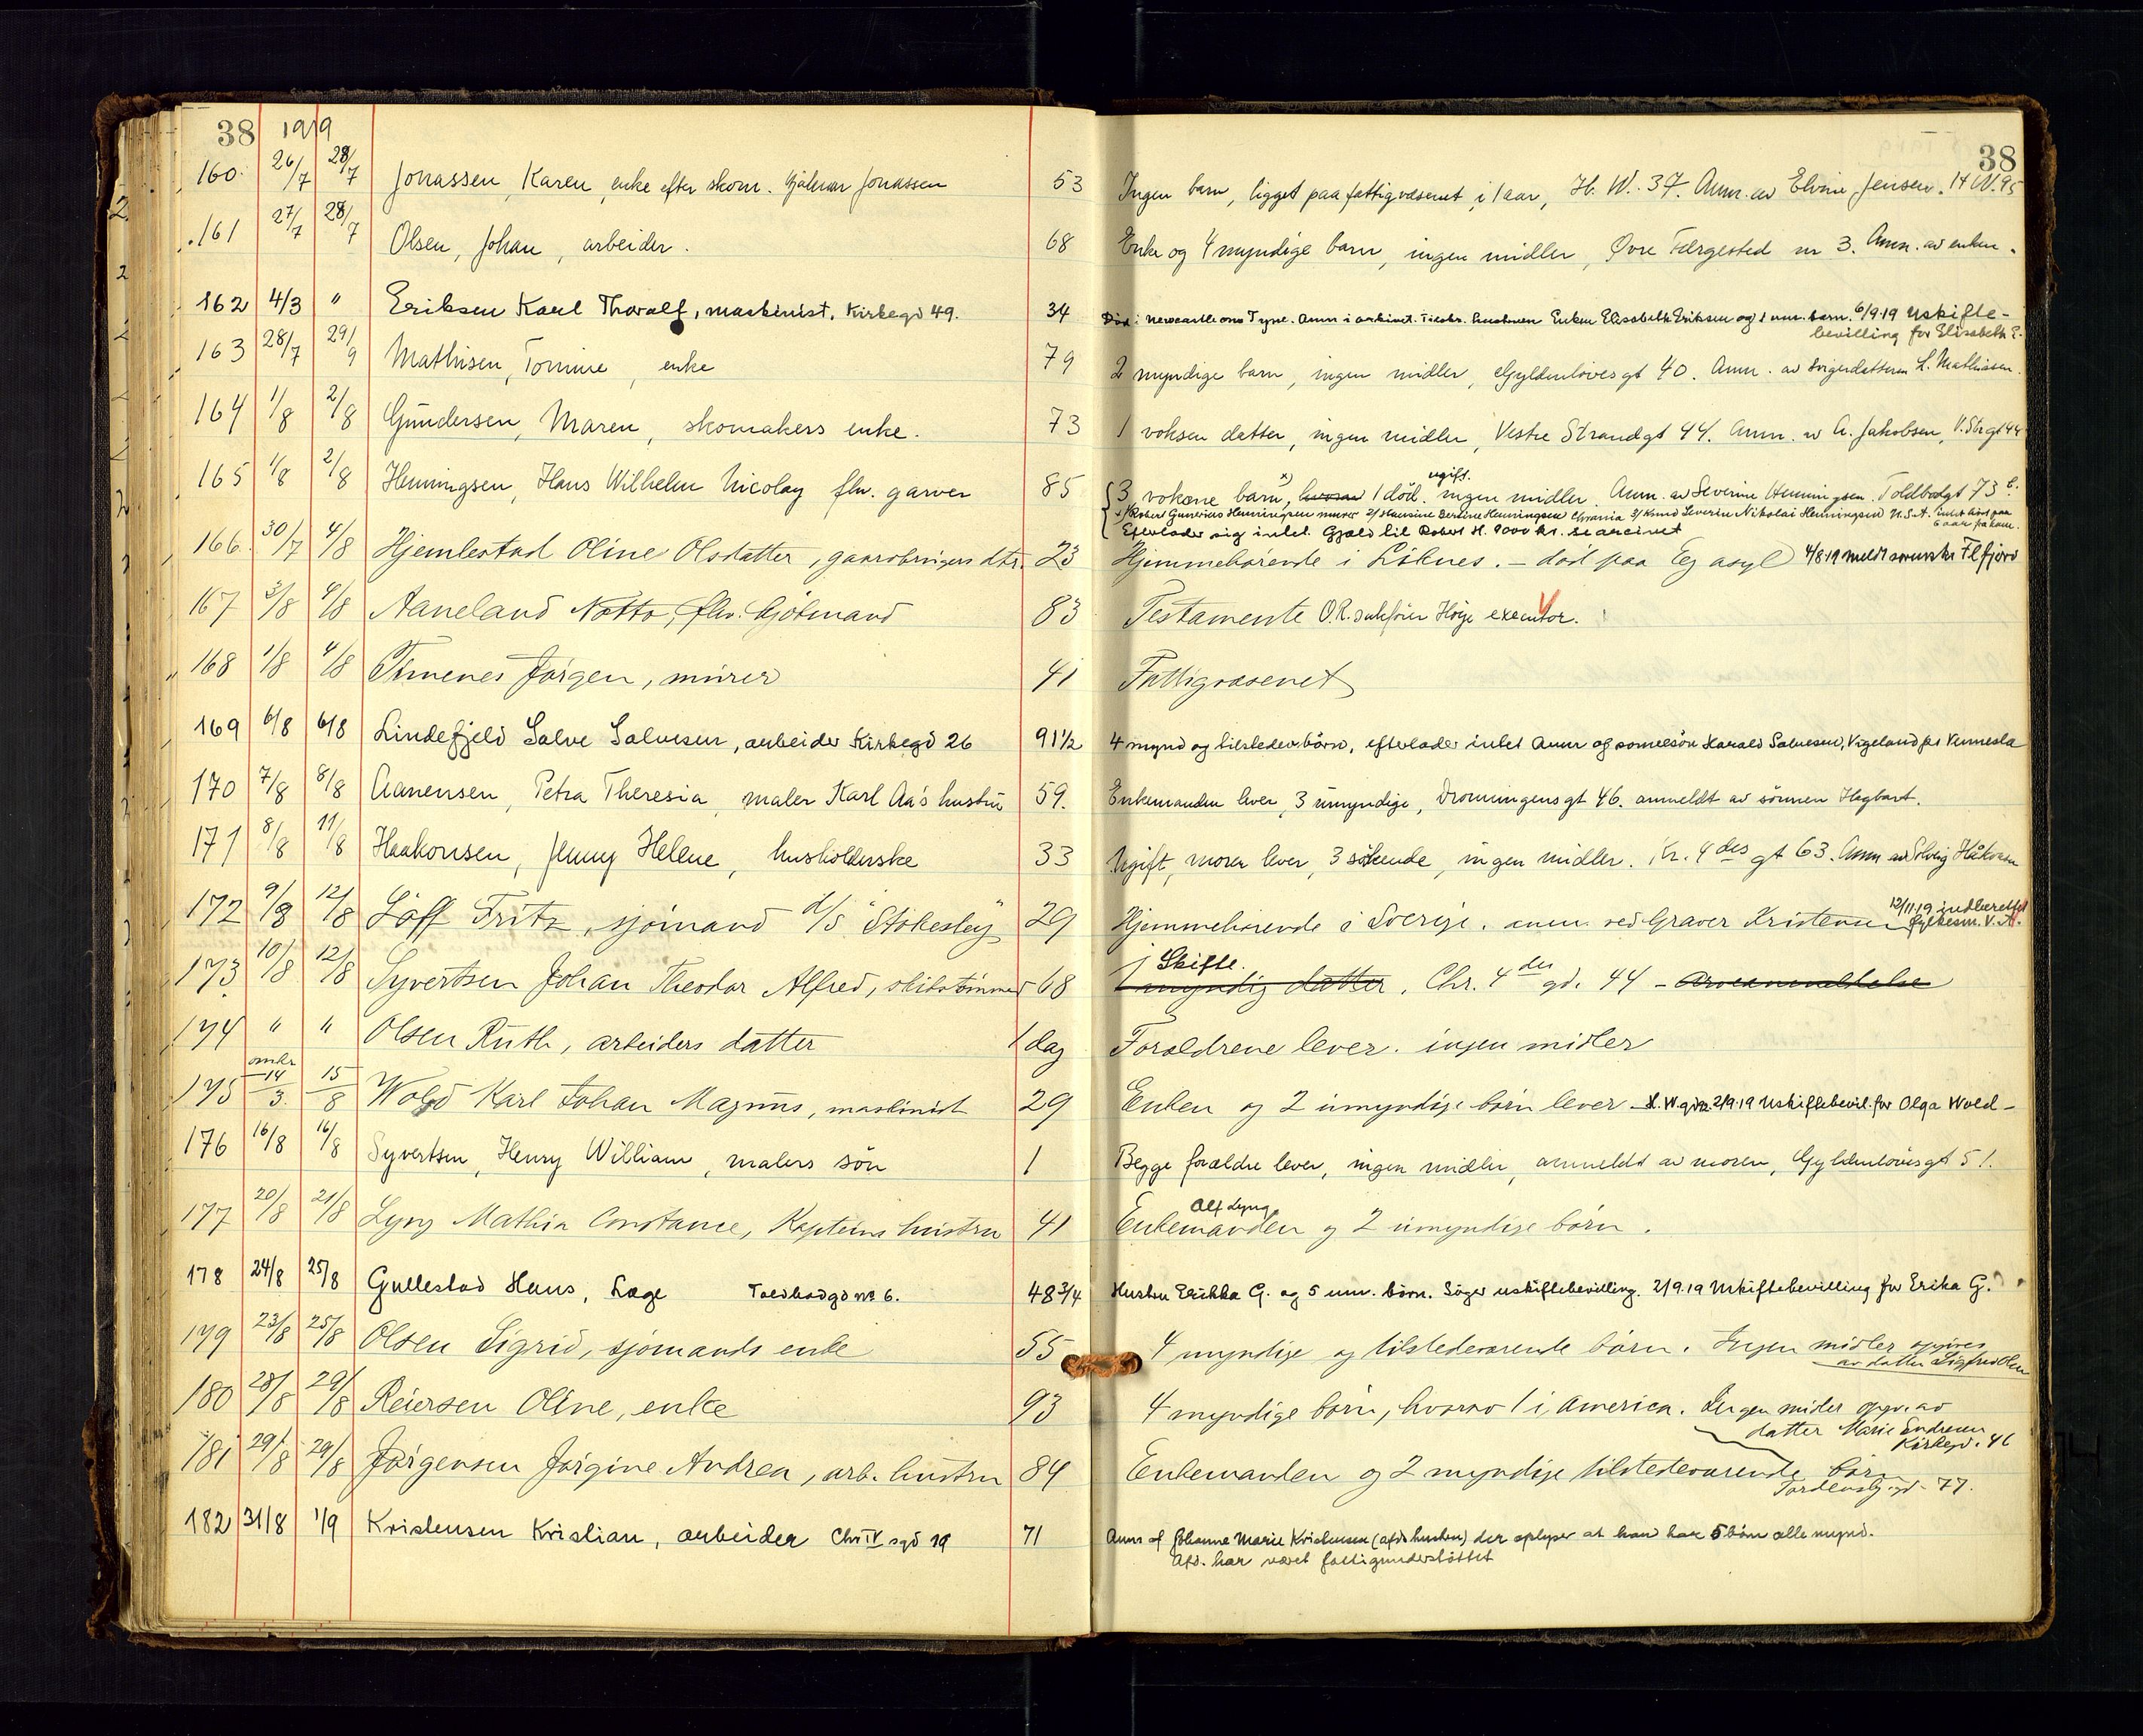 38 1919 38
160. 26/7 28/7 Jonassen, Karen, enke efter skom. Hjalmar Jonassen 53 Ingen barn, ligget paa fattigvæsenet i 1 aar, H. W. 37. Anm. av Elvine Jensen. H W. 95
161 27/7 28/7 Olsen, Johan, arbeider. 68 Enke og 4 myndige barn, ingen midler, Øvre Færgested nr 3. Anm. av enken.
162 4/3 " Eriksen Karl Thoralf, maskinist, Kirkegd 49. 34 Død i Newcastle on Tyne. Anm i arkivet. Enken Elisabeth Eriksen og 1 um. barn. 6/9.19 Uskifte-
bevilling for Elisabeth E.
163 28/7 29/9 Mathisen, Tomine, enke 79 2 myndige barn, ingen midler, Gyldenløvesgt 40. Anm. av svigerdatteren L. Mathisen.
164 1/8 2/8 Gundersen, Maren, skomakers enke. 73 1 voksen datter, ingen midler, Vestre Strandgt 44. Anm. av A. Jakobsen, V. Strgt 44
165 1/8 2/8 Henningsen, Hans Wilhelm Nicolay fhv. garver 85 3 voksne barn x), hvorav 1 død. ugift. ingen midler. Anm. av Severine Henningsen. Toldbodgt 73
x) 1/ Robert Gunerius Henningsen murer 2/ Hansine Bertine Henningsen Chrania 3/ Knud Severin Nikolai Henningsen U.S.A. intet hørt paa
6 aar
Efterlader sig intet. Gjæld til Robert H. 9000 kr.
166. 30/7 4/8 Hjemlestad Oline Olsdatter, gaardbrugers dtr. 23 Hjemmehørende i Liknes. – død paa Eg asyl 4/8 19 meldt sorenskr Flekkefjord
167 3/8 4/8 Aaneland Notto, fhv. Sjømand 83 Testamente O.R. sakfører Høje executor.
168 1/8 4/8 Timenes Jørgen, murer 41 Fattigvæsenet
169 6/8 6/8 Lindefjeld Salve Salvesen, arbeider Kirkegd 26 91 1/2 4 mynd og tilstedev. børn, efterlader intet Anm af sønnesøn Harald Salvesen, Vigeland pr Vennesla
170 7/8 8/8 Aanensen, Petra Theresia, maler Karl Aa's hustru 59. Enkemanden lever, 3 umyndige, Dronningensgt 46. anmeldt av sønnen Hagbart.
171 8/8 11/8 Haakonsen, Jenny Helene, husholderske 33 Ugift, moren lever, 3 søskende, ingen midler. Kr. 4des gt 63. Anm av Solveig Håkonsen
172 9/8 12/8 Löff Fritz, sjømand d/s "Stokesley" 29 Hjemmehørende i Sverige. anm. ved Graver Kristensen 12/11.19 indberettet
fylkesm. V. A.
173 10/8 12/8 Syvertsen Johan Theodor Alfred, skibstømmerm 68 1 myndig datter, Skifte. Chr. 4des gd. 44 – arveanmeldelse
174 " " Olsen Ruth, arbeiders datter 1 dag Forældrene lever. ingen midler
175 omkr 14/3. 15/8 Wold Karl Johan Magnus, maskinist 29 Enken og 2 umyndige børn lever – H. W. gd 2/9.19 Uskiftebevil. for Olga Wold –
176 16/8 16/8 Syvertsen, Henry William, malers søn 1 Begge forældre lever, ingen midler, anmeldt av moren, Gyldenløvesgt 51.
177 20/8 21/8 Lyng Mathia Constance, Kapteins hustru 41 Enkemanden Alf Lyng og 2 umyndige børn.
178 24/8 25/8 Gullestad Hans, Læge Toldbodgd no 6. 48 3/4 Hustru Erikka G. og 5 um. børn. Søger uskiftebevilling. 2/9.19 Uskiftebevilling for Erika G.
179 23/8 25/8 Olsen Sigrid, sjømands enke 55 4 myndige og tilstedeværende børn. Ingen midler opgives
av datter Sigfrid Olsen
180 28/8 29/8 Reiersen Oline, enke 93 4 myndige børn, hvorav 1 i America. Ingen midler opgv. av
datter Marie Endresen
Kirkegd. 46
181 29/8 29/8 Jørgensen Jørgine Andrea, arb. hustru 84 Enkemanden og 2 myndige tilstedeværende børn
Tordenskj. gd. 77.
182 31/8 1/9 Kristensen Kristian, arbeider Chr IV sgd 19 71 Anm af Johanne Marie Kristensen (afds hustru) der oplyser at han har 5 børn alle mynd.
Afd. har været fattigunderstøttet